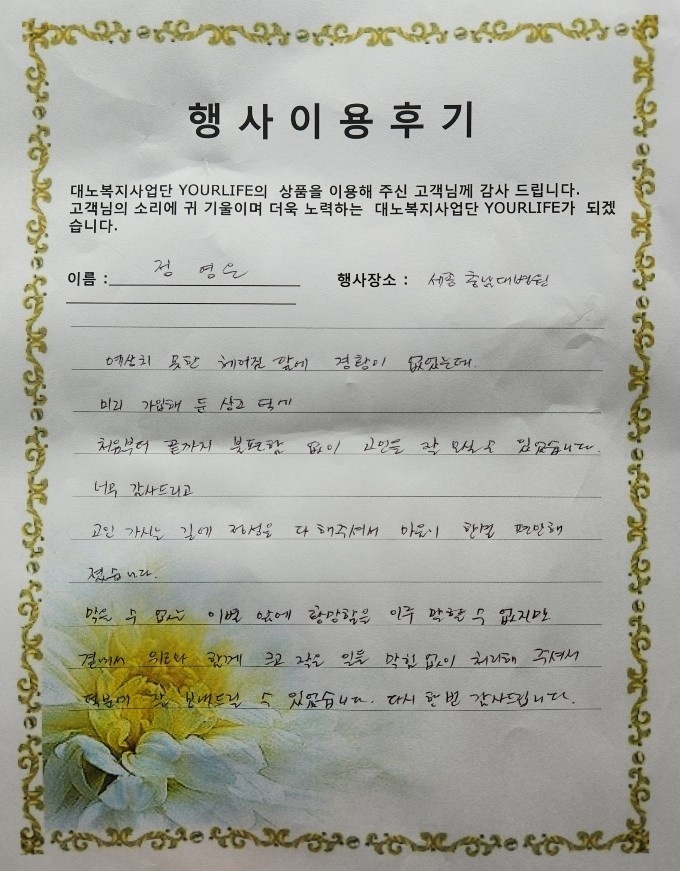 행사이용후기
대노복지사업단 YOURLIFE의 상품을 이용해 주신 고객님께 감사 드립니다.
고객님의 소리에 귀 기울이며 더욱 노력하는 대노복지사업단 YOURLIFE가 되겠
습니다.
이름 : 정영은 행사장소 : 세종 충남대병원
예상치 못한 헤어짐 앞에 경황이 없었는데
미리 가입해 둔 상조 덕에
처음부터 끝까지 불편함 없이 고인을 잘 모실 수 있었습니다.
너무 감사드리고
고인 가시는 길에 정성을 다 해주셔서 마음이 한결 편안해
졌습니다.
막을 수 없는 이별 앞에 황망함을 이루 말할 수 없지만
곁에서 위로와 함께 크고 작은 일을 막힘없이 처리해 주셔서
덕분에 잘 보내드릴 수 있었습니다. 다시 한번 감사드립니다.